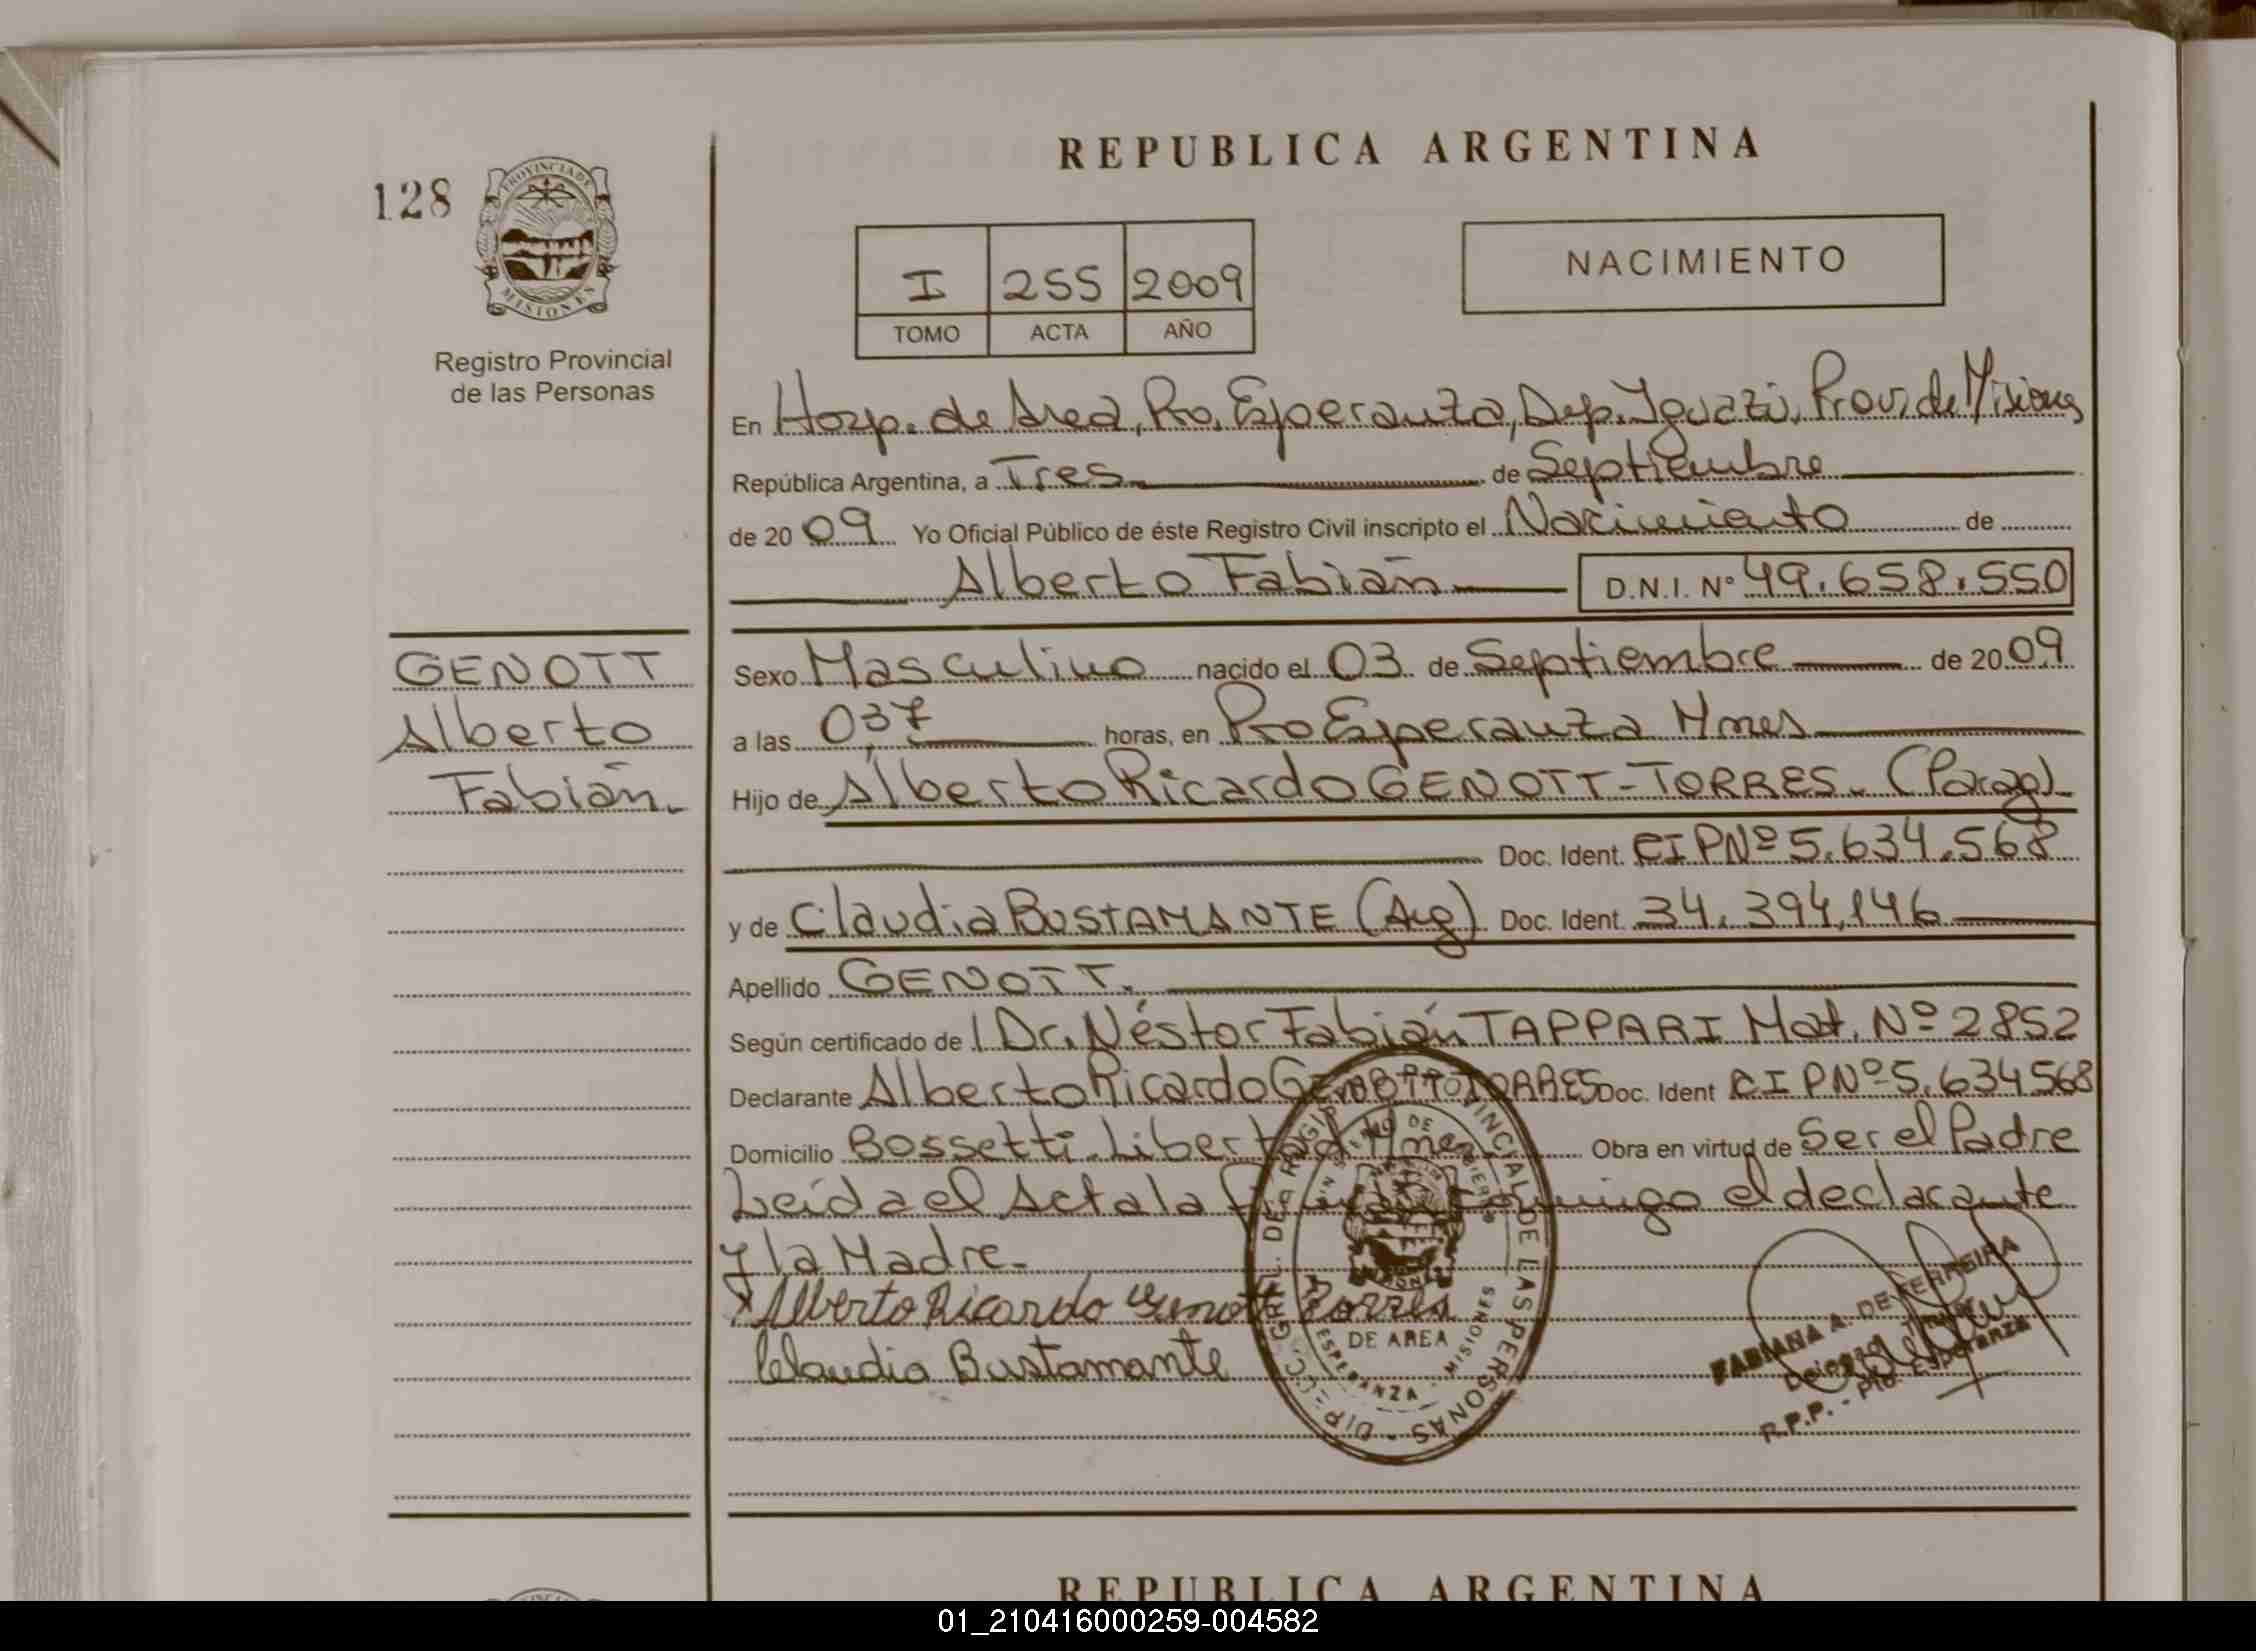 REPUBLICA ARGENTINA
128
PROVINCIA DE
MISIONES
Registro Provincial
de las Personas
I 255 2009
TOMO ACTA AÑO
NACIMIENTO
En Hosp. de Area, Pto. Esperanza, Dep. Iguazú, Prov. de Misiones
República Argentina, a Tres de Septiembre
de 2009 Yo Oficial Público de éste Registro Civil inscripto el Nacimiento de
Alberto Fabián D.N.I. Nº 49.658.550
GENOTT
Alberto
Fabián.
Sexo Masculino nacido el 03 de Septiembre de 2009
a las 0,37 horas, en Pto Esperanza Mnes
Hijo de Alberto Ricardo GENOTT-TORRES. (Parag)
Doc. Ident. CIPNº 5.634.568
y de Claudia BUSTAMANTE (Arg) Doc. Ident. 34.394.146
Apellido GENOTT.
Según certificado de Dr. Néstor Fabián TAPPARI Mat. Nº 2852
Declarante Alberto Ricardo GENOTT TORRES Doc. Ident CIPNº 5.634568
Domicilio Bossetti. Libertad Mnes Obra en virtud de Ser el Padre
Leída el Acta la firman conmigo el declarante
y la Madre.
Alberto Ricardo Genott Torres
Claudia Bustamante
DE AREA
ESPERANZA - MISIONES
PROVINCIAL DE LAS PERSONAS
FABIANA A. DE FERREIRA
R.P.P. - Pto. Esperanza
REPUBLICA ARGENTINA
01_210416000259-004582